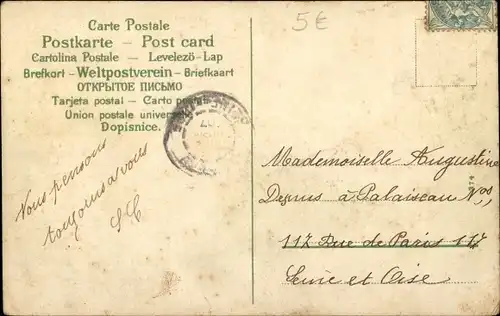 Carte Postale
Postkarte – Post card
Cartolina Postale – Levelezö-Lap
Brefkort – Weltpostverein – Briefkaart
ОТКРЫТОЕ ПИСЬМО
Tarjeta postal – Carto postal
Union postale universelle
Dopisnice.
5€
Vous pensons
toujours a vous
Mademoiselle Augustine
à Palaiseau Nº
117 Rue de Paris 117
Seine et Oise